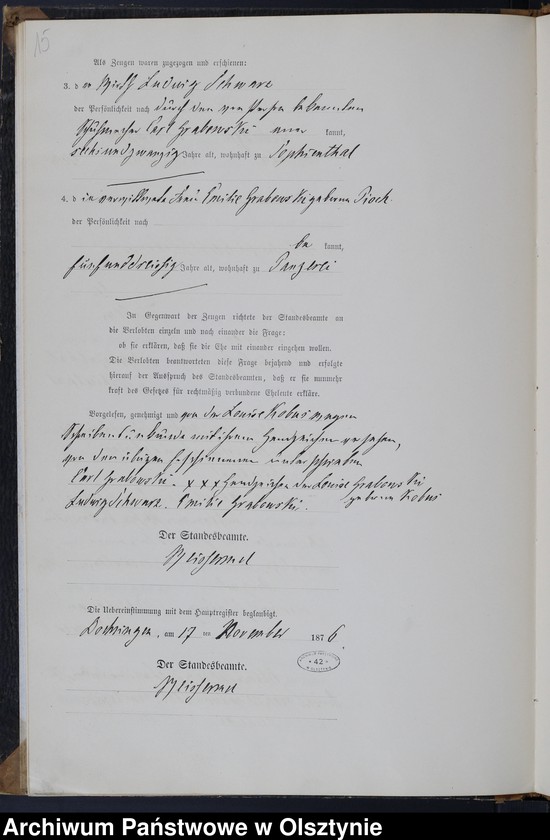 15
Als Zeugen waren zugezogen und erschienen:
3. der Wirth Ludwig Schwarz
der Persönlichkeit nach durch den von Person bekannten
Schuhmacher Carl Grabowski aner kannt,
sechsundzwanzig Jahre alt, wohnhaft zu Sophienthal
4. die verwittwete Frau Emilie Grabowski geborene Pioch
der Persönlichkeit nach
be kannt,
fünfunddreißig Jahre alt, wohnhaft zu
In Gegenwart der Zeugen richtete der Standesbeamte an
die Verlobten einzeln und nach einander die Frage:
ob sie erklären, daß sie die Ehe mit einander eingehen wollen.
Die Verlobten beantworteten diese Frage bejahend und erfolgte
hierauf der Ausspruch des Standesbeamten, daß er sie nunmehr
kraft des Gesetzes für rechtmäßig verbundene Eheleute erkläre.
Vorgelesen, genehmigt und von der Louise Kobus wegen
Schreibensunkunde mit ihrem Handzeichen versehen,
von den übrigen Erschienenen unterschrieben
Carl Grabowski. x x x Handzeichen der Louise Grabowski
geborene Kobus
Ludwig Schwarz. Emilie Grabowski.
Der Standesbeamte.
Die Uebereinstimmung mit dem Hauptregister beglaubigt.
am 17 ten November 1876.
Der Standesbeamte.
42
Archiwum Państwowe w Olsztynie